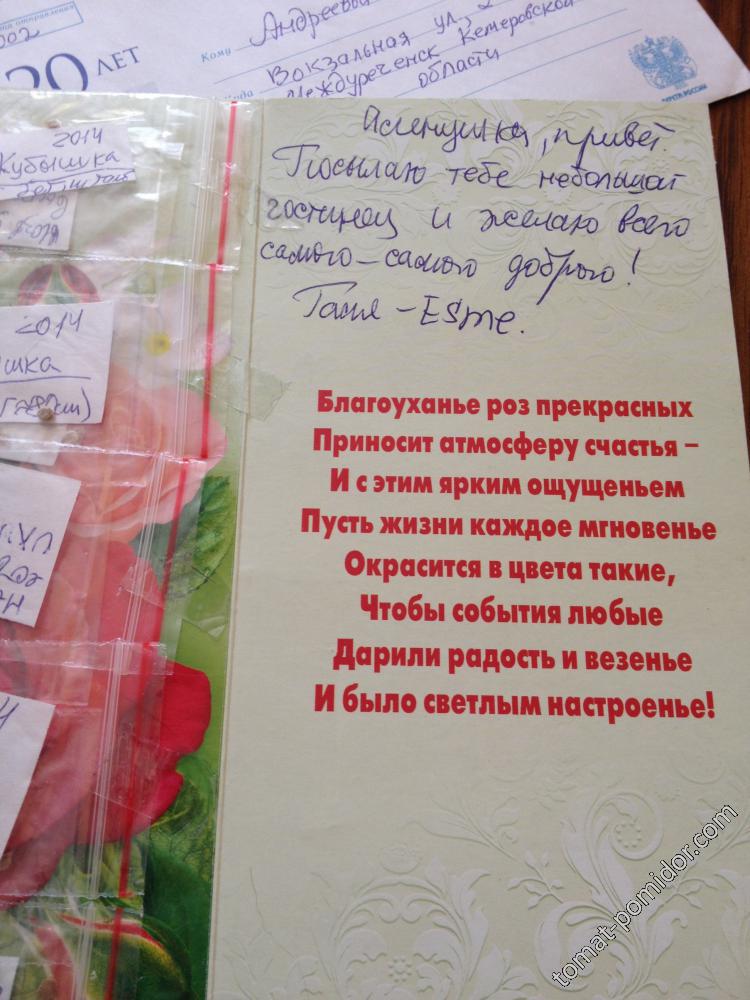 002
20 ЛЕТ
Кому Андреевой
Куда Вокзальная ул, 2
Междуреченск Кемеровской
области
ПОЧТА РОССИИ
2014
Кубышка
2014
шка
Аленушка, привет.
Посылаю тебе небольшой
гостинец и желаю всего
самого-самого доброго!
Таня - Esme.
Благоуханье роз прекрасных
Приносит атмосферу счастья –
И с этим ярким ощущеньем
Пусть жизни каждое мгновенье
Окрасится в цвета такие,
Чтобы события любые
Дарили радость и везенье
И было светлым настроенье!
tomat-pomidor.com